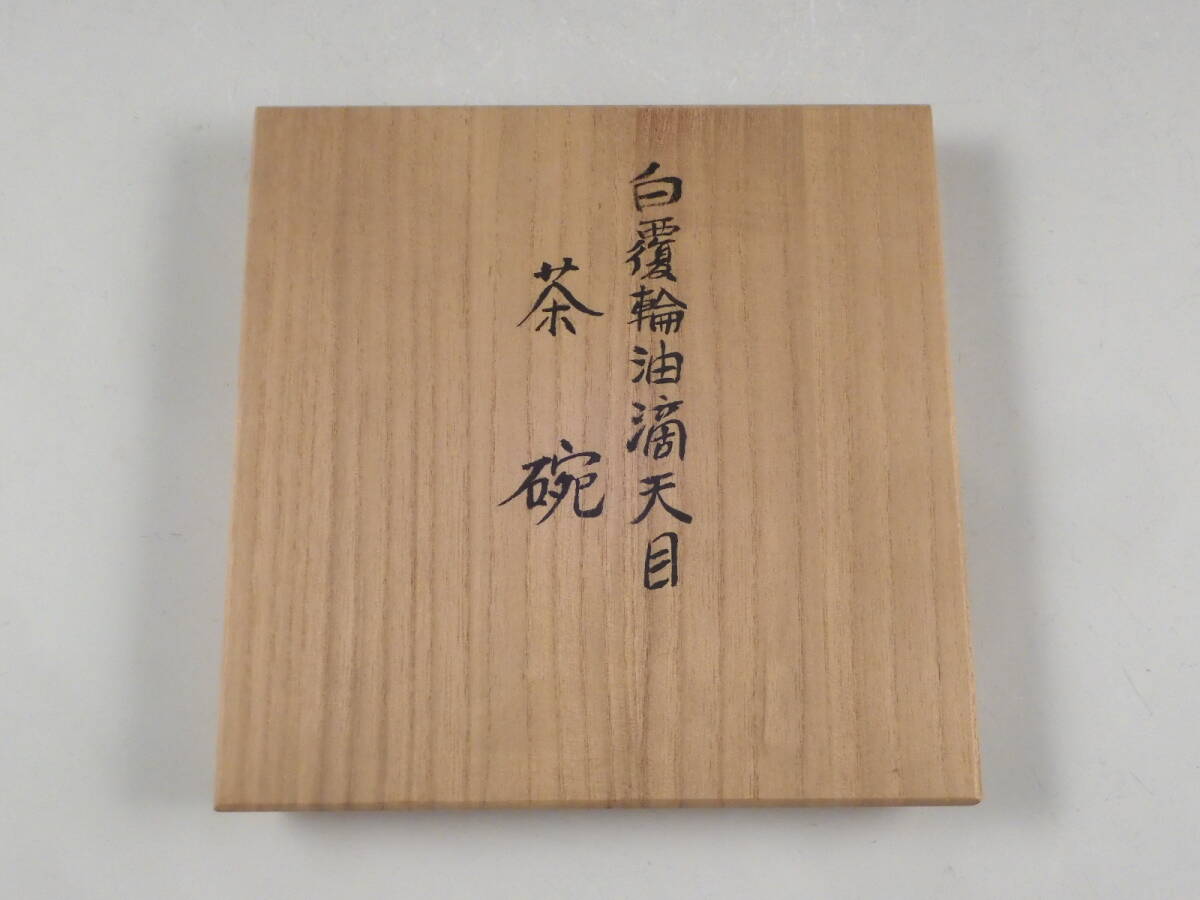 白覆輪油滴天目
茶碗